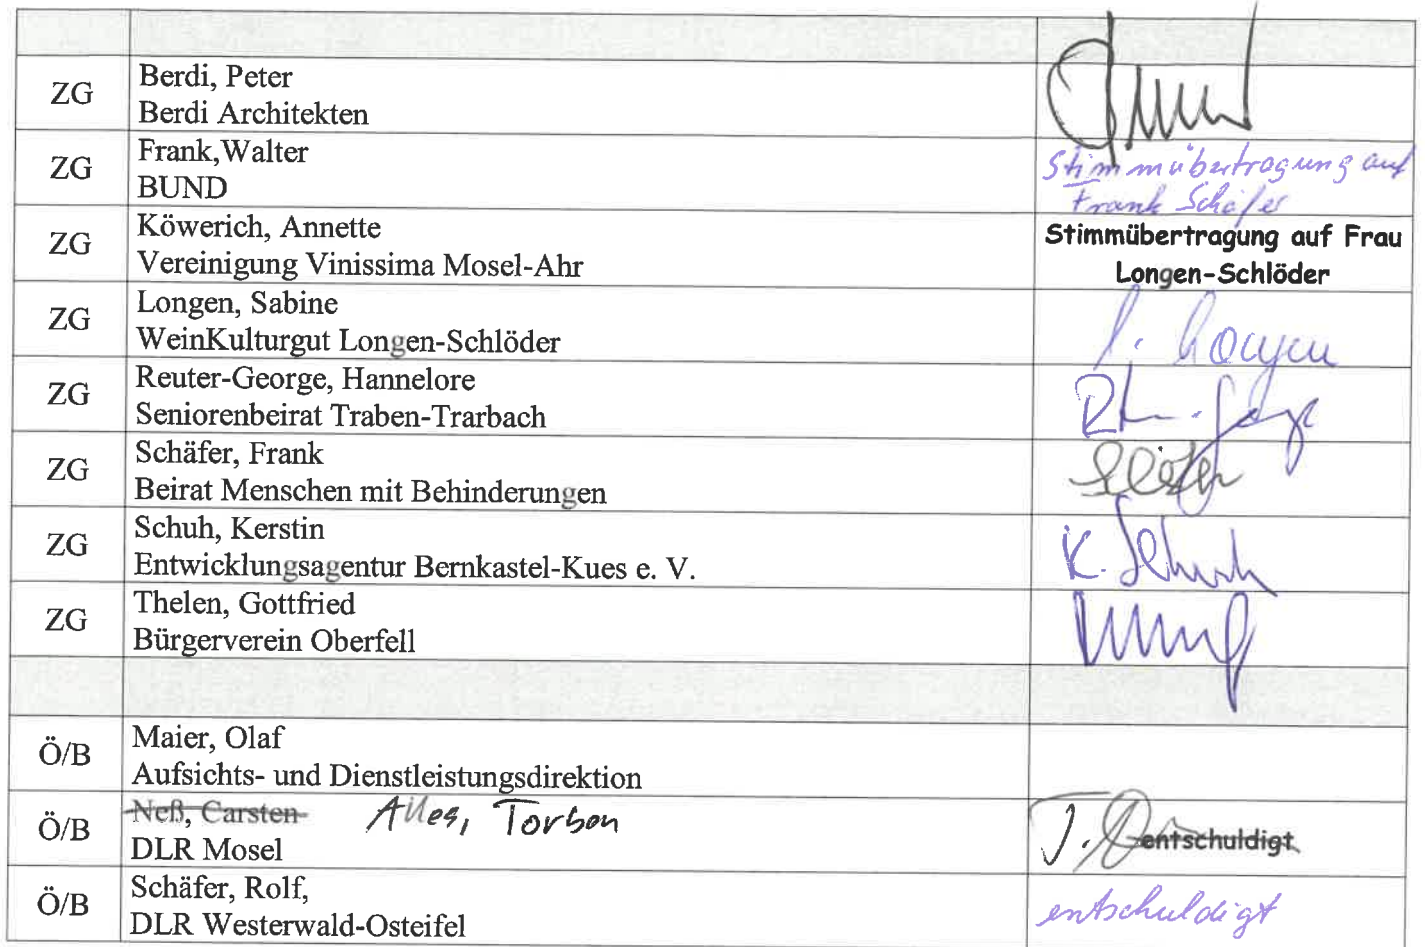 ZG
Berdi, Peter
Berdi Architekten
ZG
Frank,Walter
BUND
Stimmübertragung auf
Frank Schäfer
ZG
Köwerich, Annette
Vereinigung Vinissima Mosel-Ahr
Stimmübertragung auf Frau
Longen-Schlöder
ZG
Longen, Sabine
WeinKulturgut Longen-Schlöder
ZG
Reuter-George, Hannelore
Seniorenbeirat Traben-Trarbach
ZG
Schäfer, Frank
Beirat Menschen mit Behinderungen
ZG
Schuh, Kerstin
Entwicklungsagentur Bernkastel-Kues e. V.
K. Schuh
ZG
Thelen, Gottfried
Bürgerverein Oberfell
Ö/B
Maier, Olaf
Aufsichts- und Dienstleistungsdirektion
Ö/B
Neß, Carsten Alles, Torben
DLR Mosel
entschuldigt
Ö/B
Schäfer, Rolf,
DLR Westerwald-Osteifel
entschuldigt